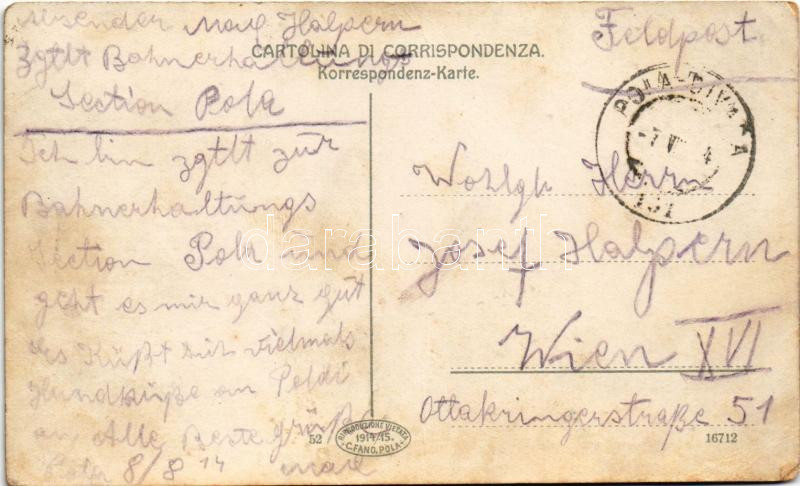 Absender Max Halpern
zgtlt Bahnerhaltungs
Section Pola
Feldpost
CARTOLINA DI CORRISPONDENZA.
Korrespondenz-Karte.
Ich bin zgtlt zur
Bahnerhaltungs
Section Pola und
geht es mir ganz gut
Es Küßt Dich vielmals
Handküße an Poldi
an Alle Beste Grüße
Pola 8/8 14 Max
POLA
Wohlgb Herrn
Josef Halpern
Wien XVI
Ottakringerstraße 51
52
RIPRODUZIONE VIETATA
1914/15.
C. FANO, POLA
16712
darabanth